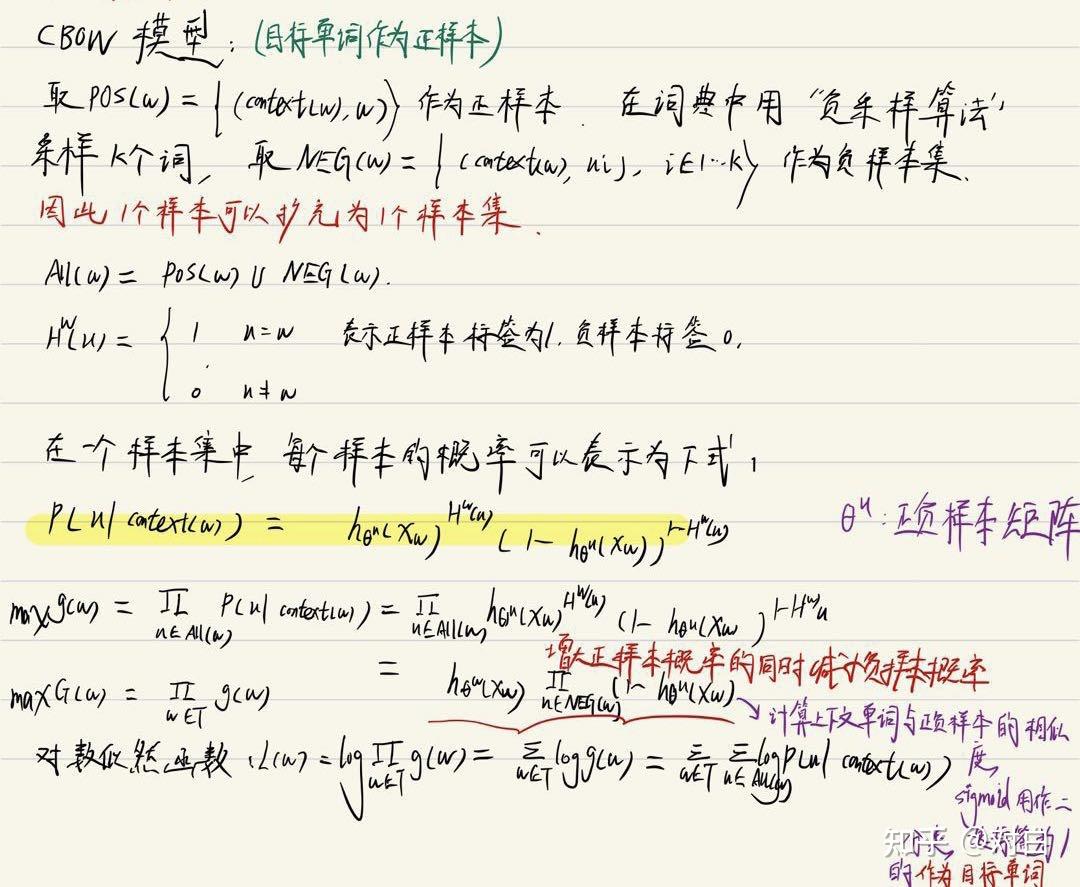 CBOW 模型：(目标单词作为正样本)
取 POS(w) = {(context(w), w)} 作为正样本. 在词典中用“负采样算法”
采样 K个词, 取 NEG(w) = {(context(w), ui), i∈1…k} 作为负样本集.
因此 1个样本可以扩充为1个样本集.
All(w) = POS(w) ∪ NEG(w).
H^w(u) = { 1 u=w 表示正样本标签为1, 负样本标签0,
0 u≠w
在一个样本集中, 每个样本的概率可以表示为下式,
P(u|context(w)) = h_θ^u(x_w)^H^w(u) (1-h_θ^u(x_w))^1-H^w(u)
θ^u: 正负样本矩阵
max g(w) = ∏_{u∈All(w)} P(u|context(w)) = ∏_{u∈All(w)} h_θ^u(x_w)^H^w(u) (1-h_θ^u(x_w))^1-H^w(u)
增大正样本概率的同时减少负样本概率
= h_θ^w(x_w) ∏_{u∈NEG(w)} (1-h_θ^u(x_w))
max G(w) = ∏_{w∈T} g(w)
计算上下文单词与正负样本的相似
度,
对数似然函数: L(w) = log ∏_{w∈T} g(w) = Σ_{w∈T} log g(w) = Σ_{w∈T} Σ_{u∈All(w)} log P(u|context(w))
sigmoid 用作二
知乎
的作为目标单词